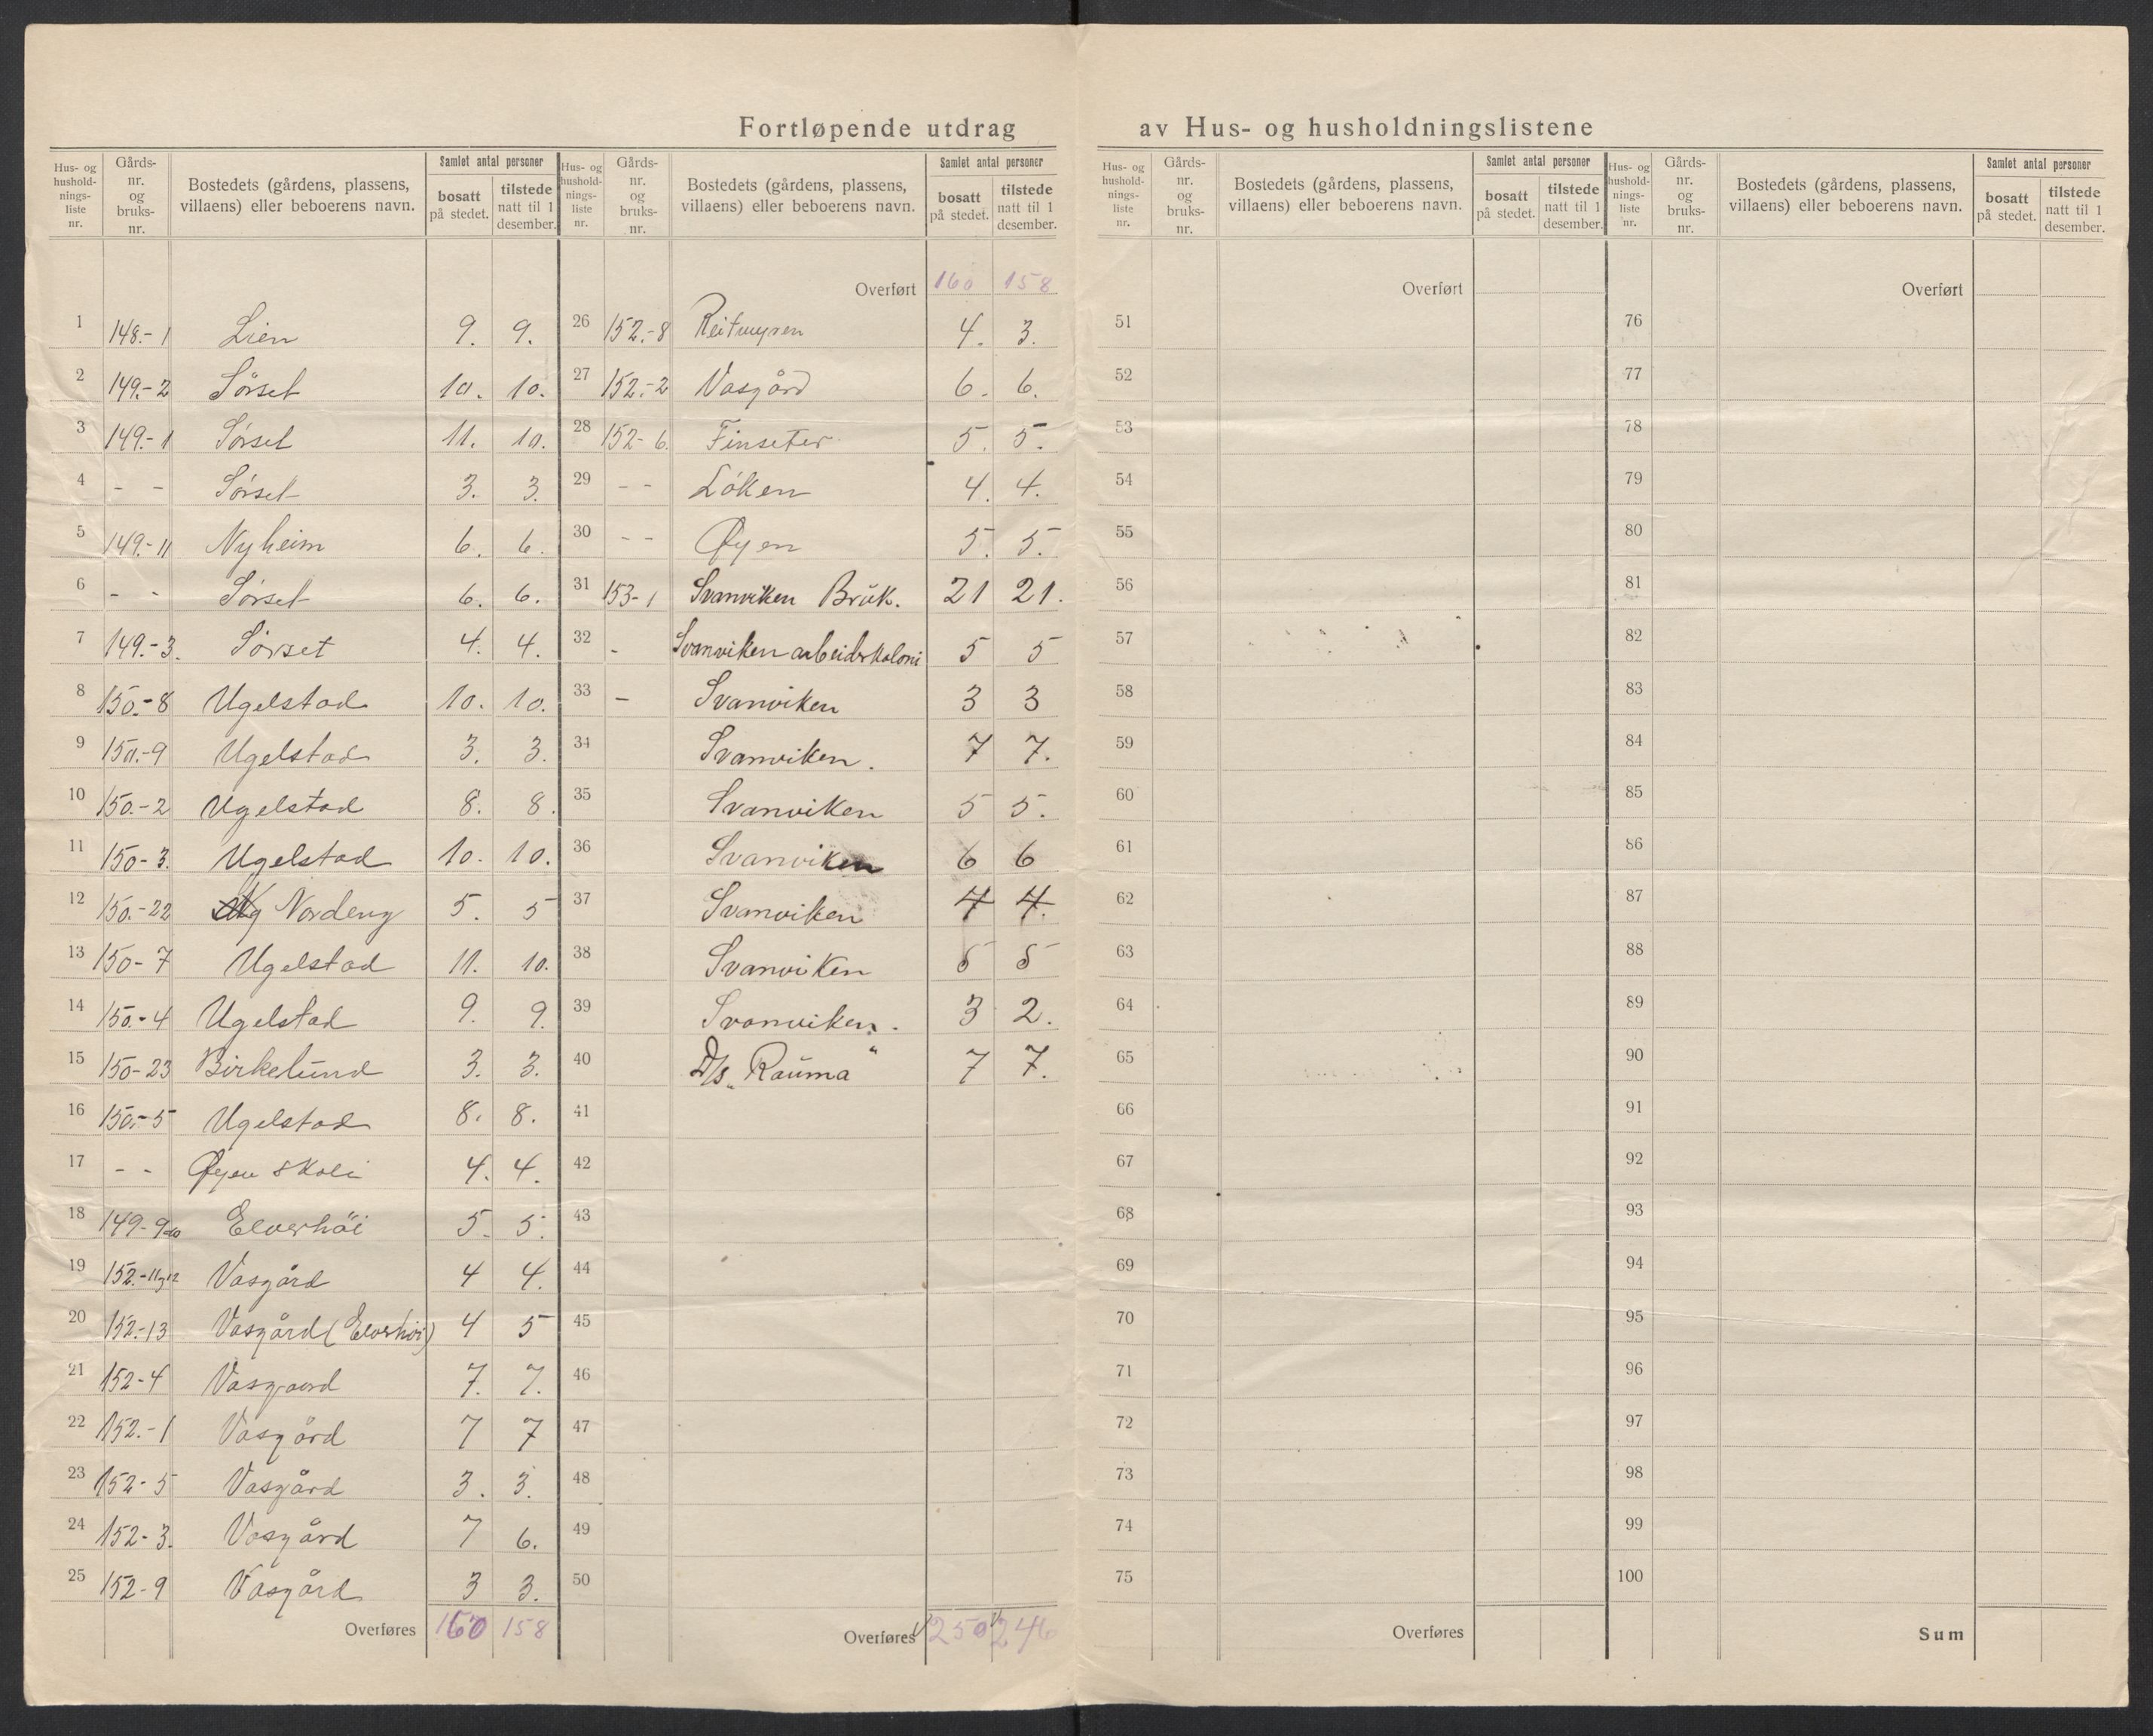 Fortløpende utdrag av Hus- og husholdningslistene
Hus- og hushold-nings-liste nr. | Gårds-nr. og bruks-nr. | Bostedets (gårdens, plassens, villaens) eller beboerens navn. | Samlet antal personer | bosatt på stedet. | tilstede natt til 1 desember.
1 148.-1 Lien 9. 9.
2 149.-2 Sørset 10. 10.
3 149.-1 Sørset 11. 10.
4 - - Sørset 3. 3.
5 149.-11 Nyheim 6. 6.
6 - - Sørset 6. 6.
7 149.-3. Sørset 4. 4.
8 150.-8 Ugelstad 10. 10.
9 150.-9 Ugelstad 3. 3.
10 150.-2 Ugelstad 8. 8.
11 150-3. Ugelstad 10. 10.
12 150.-22 Nordeng 5. 5
13 150-7 Ugelstad 11. 10.
14 150.-4 Ugelstad 9. 9.
15 150-23 Birkelund 3. 3.
16 150.-5 Ugelstad 8. 8.
17 - - Øyen skole 4. 4.
18 149-9 Elverhöi 5. 5.
19 152.-11 og 12 Vasgård 4 4.
20 152.-13 Vasgård (Elverhöi) 4 5
21 152-4 Vasgaard 7. 7.
22 152.-1 Vasgård 7 7
23 152-5 Vasgård 3. 3.
24 152-3. Vasgård 7 6.
25 152-9 Vasgård 3 3.
Overføres 160 158
Hus- og hushold-nings-liste nr. | Gårds-nr. og bruks-nr. | Bostedets (gårdens, plassens, villaens) eller beboerens navn. | Samlet antal personer | bosatt på stedet. | tilstede natt til 1 desember.
Overført 160 158
26 152.-8 Reitmyren 4. 3.
27 152.-2 Vasgård 6. 6.
28 152-6. Finseter 5. 5.
29 - - Löken 4. 4.
30 - - Øyen 5. 5.
31 153-1 Svanviken Brúk. 21 21.
32 - Svanviken arbeidskoloni 5 5
33 - Svanviken 3 3
34 Svanviken. 7 7.
35 Svanviken 5 5.
36 Svanviken 6 6
37 Svanviken 4 4.
38 Svanviken 5 5
39 Svanviken. 3 2.
40 D/s „Rauma" 7 7.
41
42
43
44
45
46
47
48
49
50
Overføres 250 246
Hus- og hushold-nings-liste nr. | Gårds-nr. og bruks-nr. | Bostedets (gårdens, plassens, villaens) eller beboerens navn. | Samlet antal personer | bosatt på stedet. | tilstede natt til 1 desember.
Overført
51
52
53
54
55
56
57
58
59
60
61
62
63
64
65
66
67
68
69
70
71
72
73
74
75
Overføres
Hus- og hushold-nings-liste nr. | Gårds-nr. og bruks-nr. | Bostedets (gårdens, plassens, villaens) eller beboerens navn. | Samlet antal personer | bosatt på stedet. | tilstede natt til 1 desember.
Overført
76
77
78
79
80
81
82
83
84
85
86
87
88
89
90
91
92
93
94
95
96
97
98
99
100
Sum